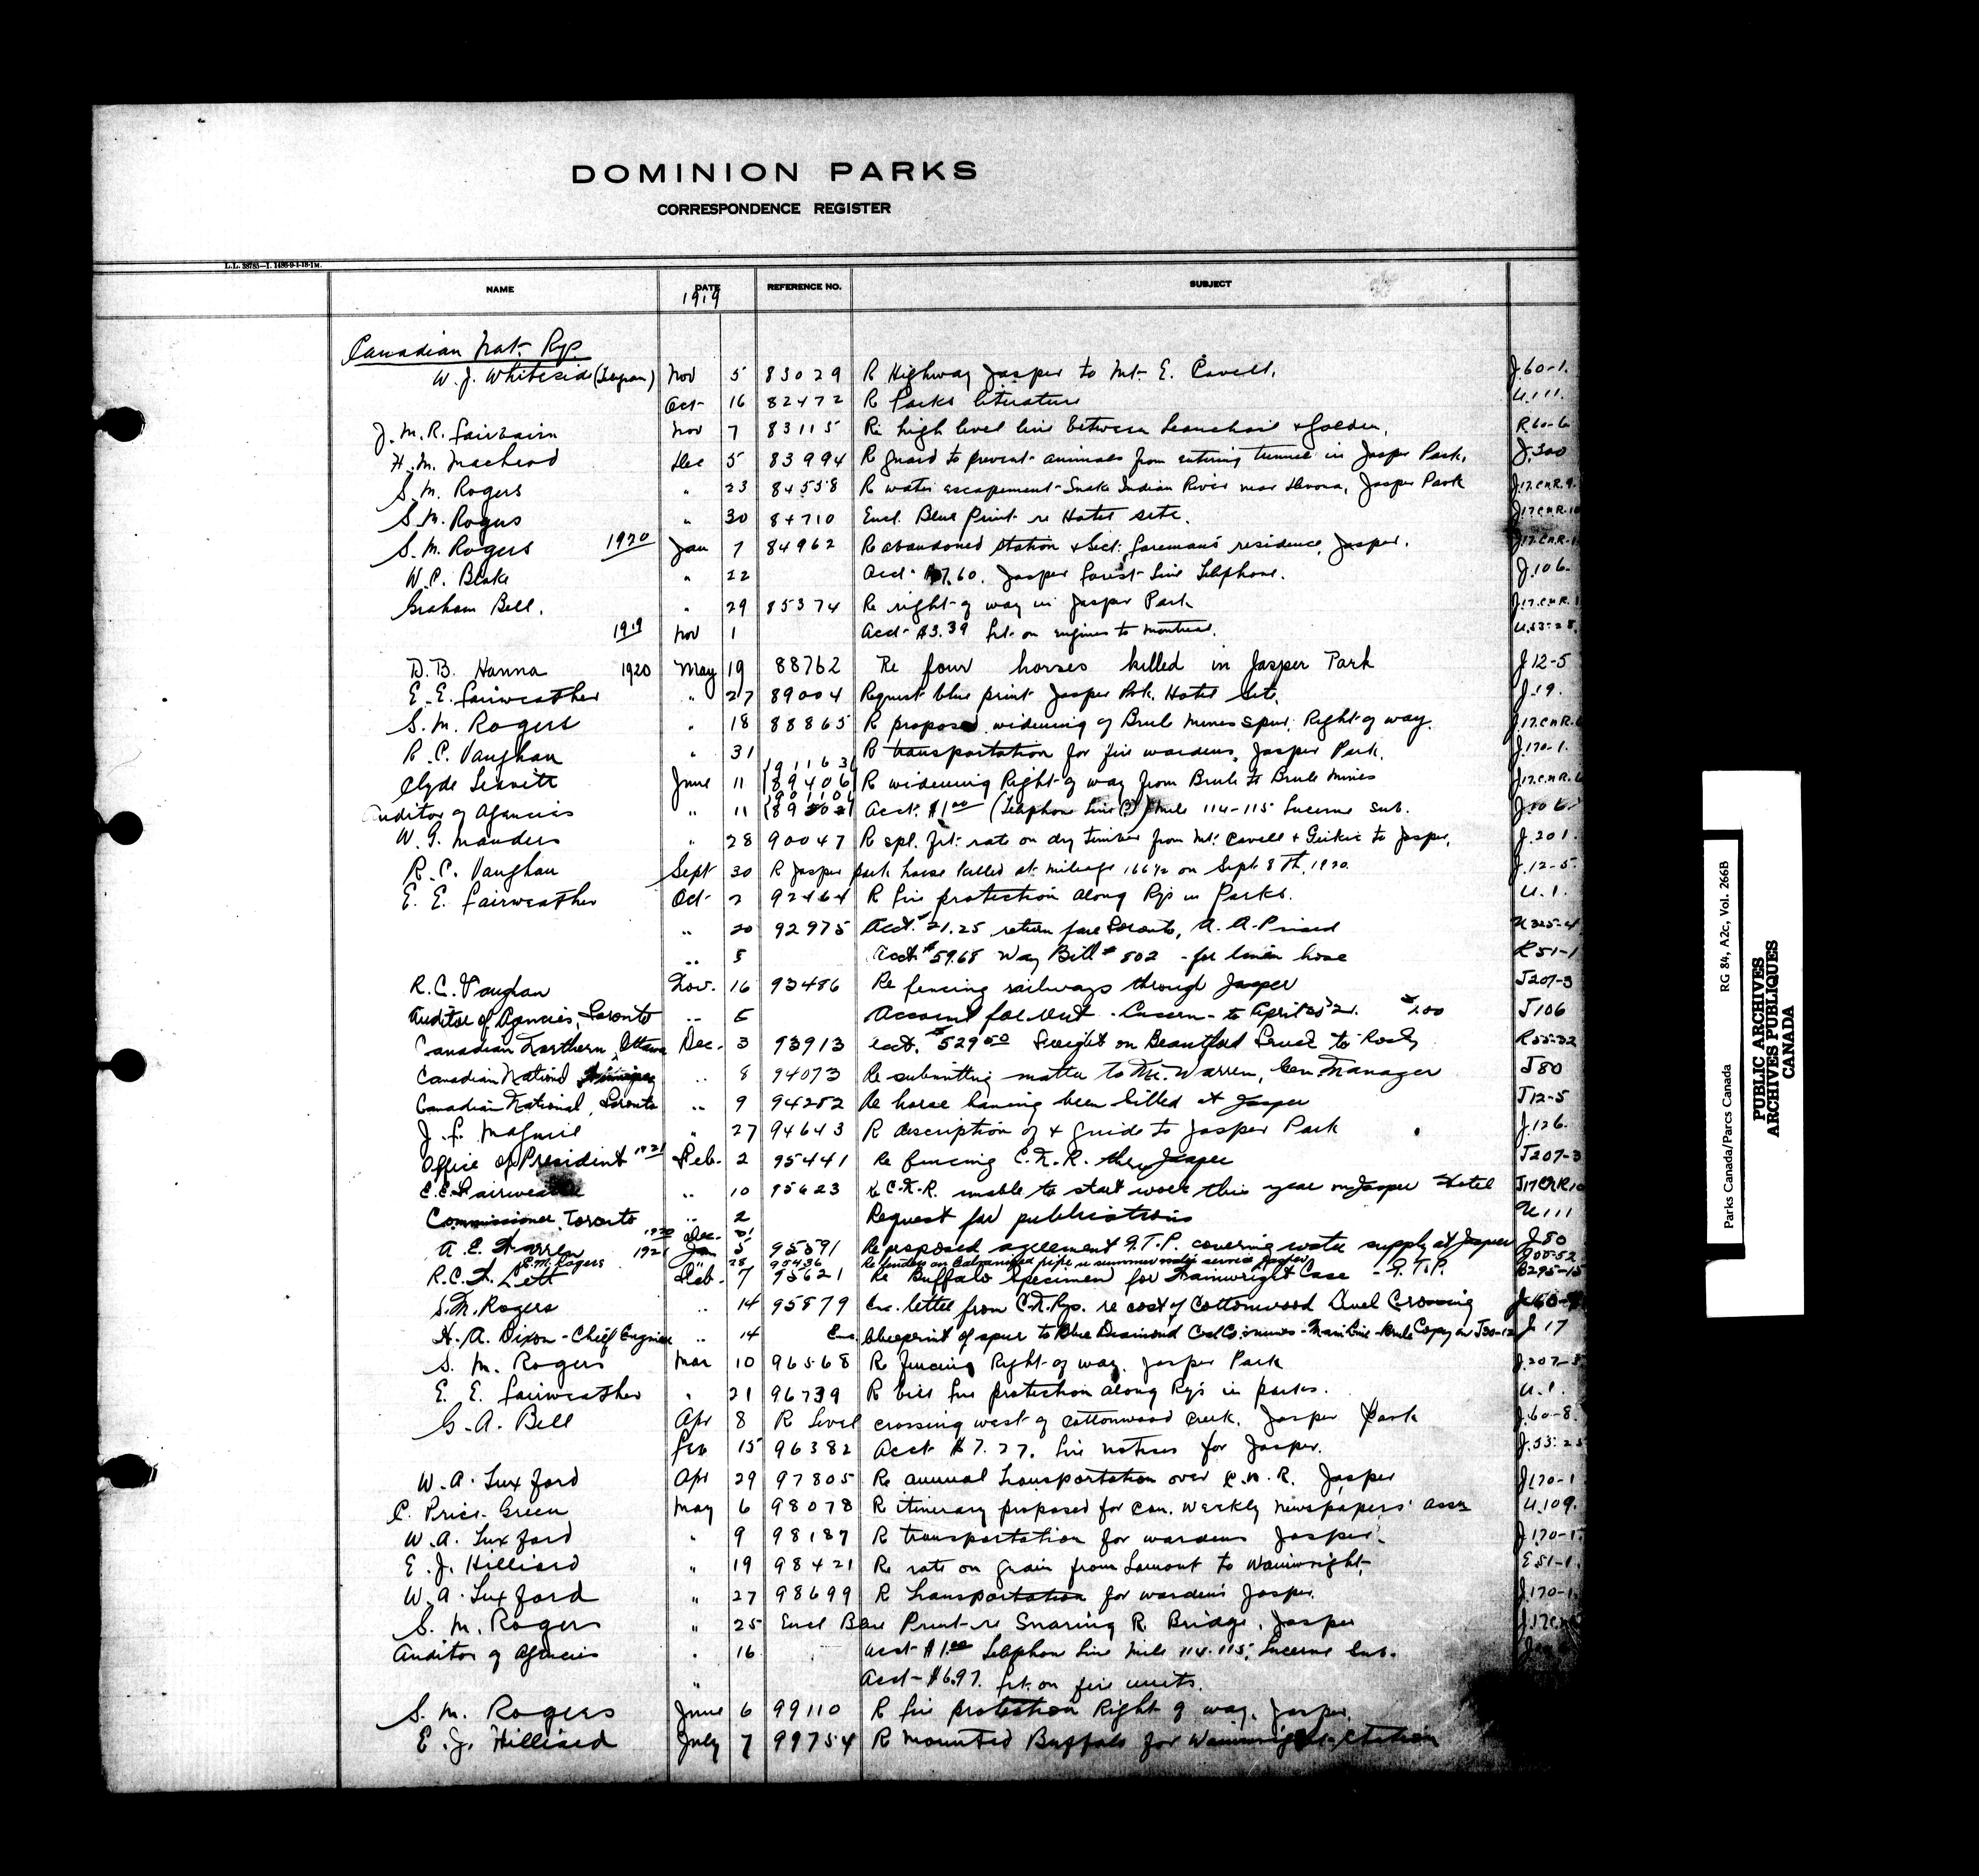 DOMINION PARKS
CORRESPONDENCE REGISTER
NAME DATE REFERENCE NO. SUBJECT
1919
Canadian Nat. Rys.
W. J. Whiteside Nov 5 83029 R Highway Jasper to Mt. E. Cavell. J.60-1.
Oct 16 82472 R Parks literature U.111.
J. M. R. Fairbairn Nov 7 83115 Re high level line between & Golden. R60-6
H. M. MacLeod Dec 5 83994 R guard to prevent animals from entering tunnel in Jasper Park. J.300
S. M. Rogers " 23 84558 R water escapement Snake Indian River near Devona, Jasper Park J.17.CNR.9.
S. M. Rogers " 30 84710 Encl. Blue Print re Hotel site. J17CNR.10
S. M. Rogers 1920 Jan 7 84962 Re abandoned station & Sect. foreman's residence, Jasper. J17.CNR.
W. C. Blake " 22 Acct. $7.60. Jasper Forest Line Telephone. J.106.
Graham Bell. " 29 85374 Re right of way in Jasper Park J.17.CNR.
1919 Nov 1 Acct $3.39 frt. on engines to Montreal. U.53-28.
D. B. Hanna 1920 May 19 88762 Re four horses killed in Jasper Park J12-5
E. E. Fairweather " 27 89004 Request blue print Jasper Pk. Hotel Site. J-19.
S. M. Rogers " 18 88865 R proposed widening of Brule Mines spur. Right of way. J.17.CNR.6
R. C. Vaughan " 31 R transportation for fire wardens, Jasper Park. J.170-1.
Clyde Leavitt June 11 89406 R widening Right of way from Brule to Brule Mines J.17.CNR.6
Auditor of Agencies " 11 Acct. $1.00 (Telephone Line(?)) Mile 114-115 Lucerne sub. J.106.
W. G. Manders " 28 90047 R spl. frt. rate on dry timber from Mt. Cavell & Geikie to Jasper. J.201.
R. C. Vaughan Sept 30 R Jasper park horse killed at mileage 166½ on Sept. 8th, 1920. J.12-5.
E. E. Fairweather Oct 2 92464 R fire protection along Rys in Parks. U.1.
" 20 92975 Acct. $21.25 return fare Toronto, A. A. U325-4
" 5 Acct $59.68 Way Bill # 802 - for linen hose R51-1
R. C. Vaughan Nov. 16 93486 Re fencing railways through Jasper J207-3
Auditor of Agencies, Toronto " 5 Account for rent - Lucerne - to April $1.00 J106
Canadian Northern, Ottawa Dec. 3 93913 acct. $529.50 Freight on Brantford Truck to Rocky R55-32
Canadian National Winnipeg " 8 94073 Re submitting matter to Mr. Warren, Gen Manager J80
Canadian National, Toronto " 9 94252 Re horse having been killed at Jasper J12-5
J. F. Maguire " 27 94643 R description of & guide to Jasper Park J.126.
Office of President 1921 Feb. 2 95441 Re fencing C.N.R. thru Jasper J207-3
E. E. Fairweather " 10 95623 Re C.N.R. unable to start work this year on Jasper Hotel J17CNR10
Commissioner, Toronto " 2 Request for publications U111
A. E. Warren 1920 Dec. 31 1921 Jan 5 95591 Re proposed agreement G.T.P. covering water supply at Jasper J80
S. M. Rogers " 28 95436 Re tenders on Galvanized pipe re summer water service Jasper
R. C. W. Lett Feb. 7 95621 Re Buffalo Specimen for Wainwright Case - G.T.P. B295-15
S. M. Rogers " 14 95879 Enc. letter from C.N.Rys. re cost of Cottonwood Level Crossing J60-8
H. A. Dixon - Chief Engineer " 14 Enc. blueprint of spur to Blue Diamond Coal Co's mines - Main Line - Brule Copy on J30-12 J17
S. M. Rogers Mar 10 96568 Re fencing Right of way. Jasper Park J.207-3
E. E. Fairweather " 21 96739 R bill fire protection along Rys in parks. U.1.
G. A. Bell Apr 8 R Level crossing west of Cottonwood Creek. Jasper Park J.60-8.
Feb 15 96382 Acct $7.27. fire notices for Jasper. J.53-25
W. A. Luxford Apr 29 97805 Re annual transportation over C.N.R. Jasper J170-1
C. Price Green May 6 98078 R itinerary proposed for Can. Weekly Newspapers' Assn U.109.
W. A. Luxford " 9 98187 R transportation for wardens Jasper. J.170-1.
E. J. Hilliard " 19 98421 Re rate on grain from Lamont to Wainwright. E51-1.
W. A. Luxford " 27 98699 R Transportation for wardens Jasper. J.170-1.
S. M. Rogers " 25 Encl Blue Print re Snaring R. Bridge, Jasper J.17C
Auditor of Agencies " 16 Acct $1.00 Telephone Line Mile 114-115, Lucerne Sub.
" Acct $6.97. frt. on fire units.
S. M. Rogers June 6 99110 R fire protection Right of way. Jasper.
E. J. Hilliard July 7 99754 R Mounted Buffalo for Wainwright Station
Parks Canada/Parcs Canada RG 84, A2c, Vol. 266B
PUBLIC ARCHIVES
ARCHIVES PUBLIQUES
CANADA